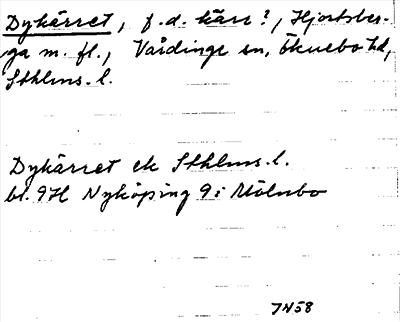 Dykärret, f.d. kärr?, Hjortsber-
ga m. fl., Vårdinge sn, Öknebo hd,
Sthlms. l.
Dykärret ek Sthlms. l.
bl. 9H Nyköping 9i Mölnbo
7N58